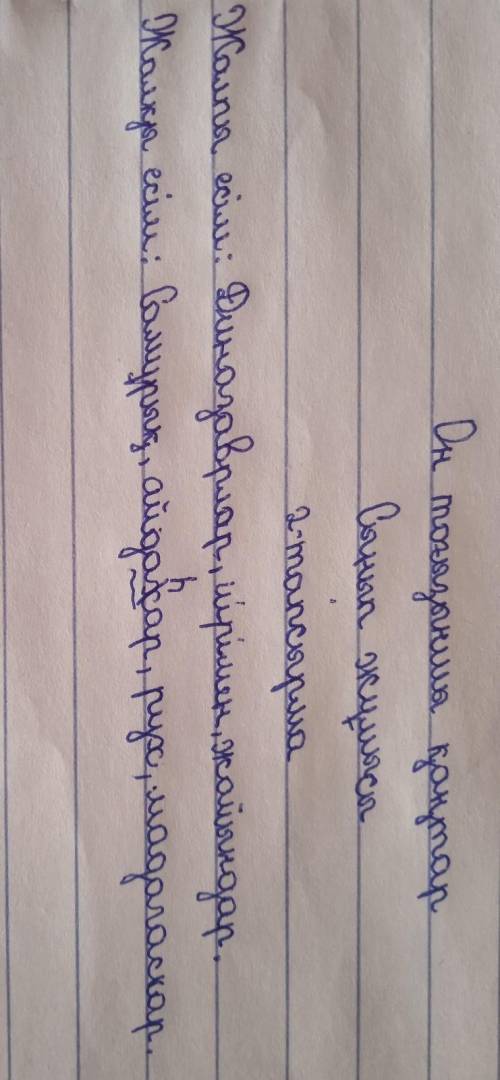 Он тоғызыншы қаңтар
Сынып жұмысы
2-тапсырма
Жалпы есім: Динозаврлар, шірімен, жайындар.
Жалқы есім: Самұрық, айдахар, рух, мадагаскар.
һ